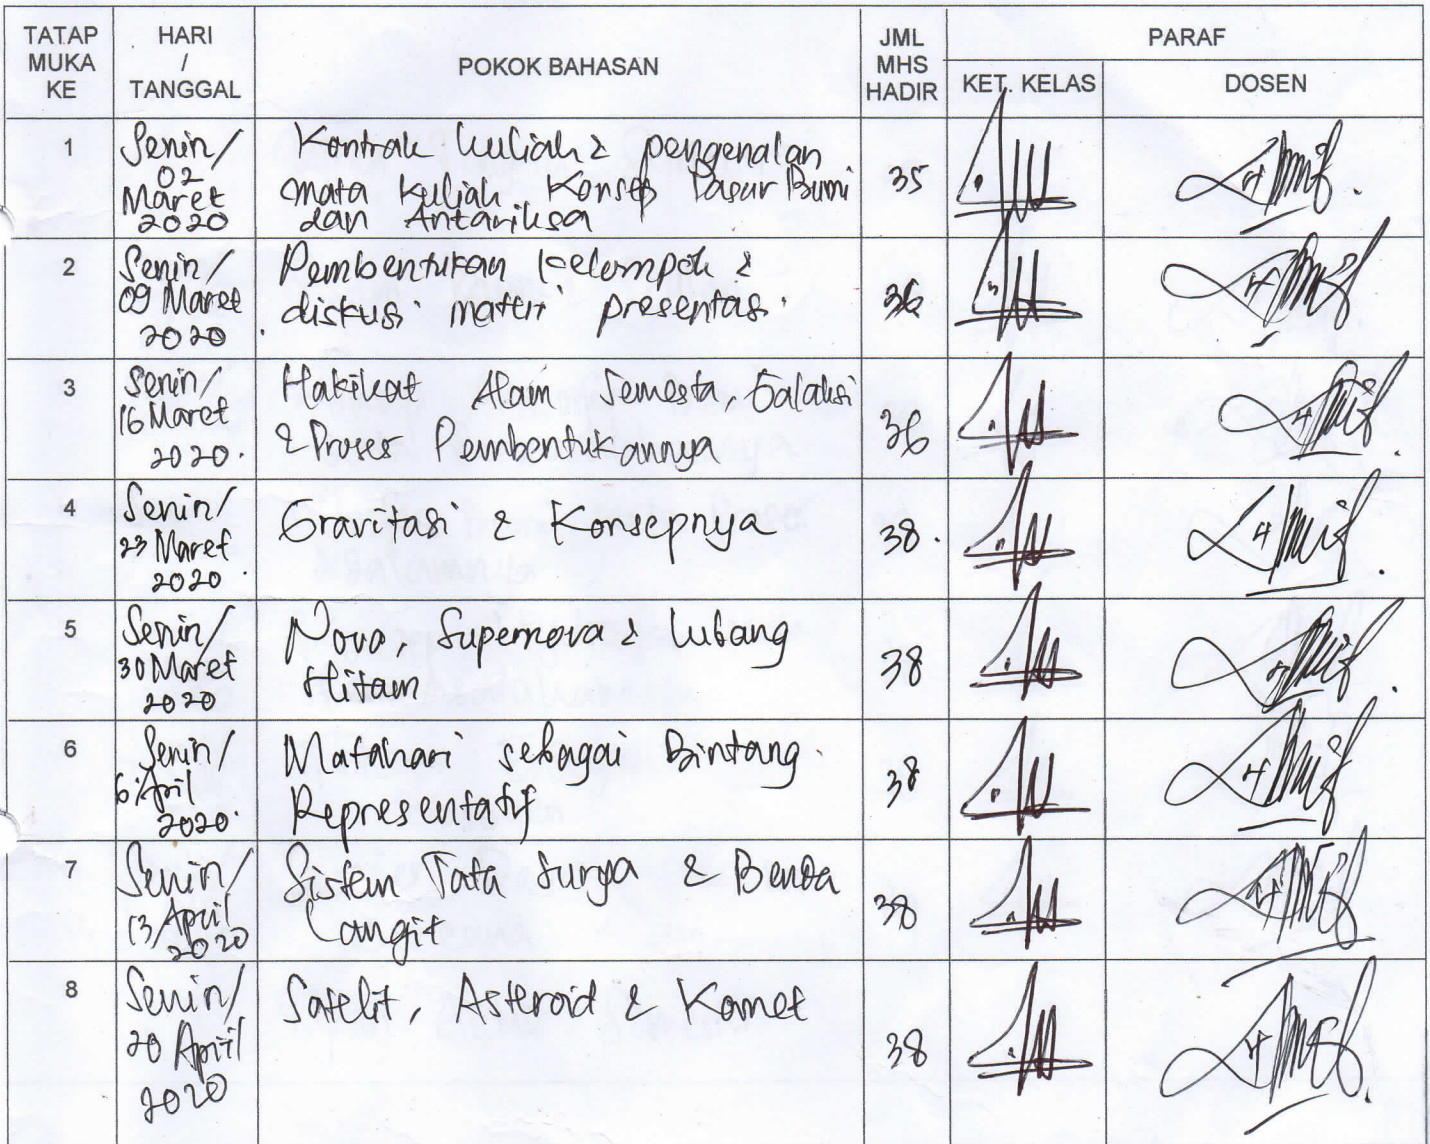 TATAP MUKA KE HARI / TANGGAL POKOK BAHASAN JML MHS HADIR PARAF
KET. KELAS DOSEN
1 Senin/ 02 Maret 2020 Kontrak kuliah & pengenalan 35
mata kuliah Konsep Dasar Bumi
dan Antariksa
2 Senin/ 09 Maret 2020. Pembentukan kelompok & 36
diskusi materi presentasi.
3 Senin/ 16 Maret 2020. Hakikat Alam Semesta, Galaksi 36
& Proses Pembentukannya
4 Senin/ 23 Maret 2020. Gravitasi & Konsepnya 38.
5 Senin/ 30 Maret 2020 Nova, Supernova & Lubang 38
Hitam
6 Senin/ 6 April 2020. Matahari sebagai Bintang 38
Representatif
7 Senin/ 13 April 2020 Sistem Tata Surya & Benda 38
Langit
8 Senin/ 20 April 2020 Satelit, Asteroid & Komet 38